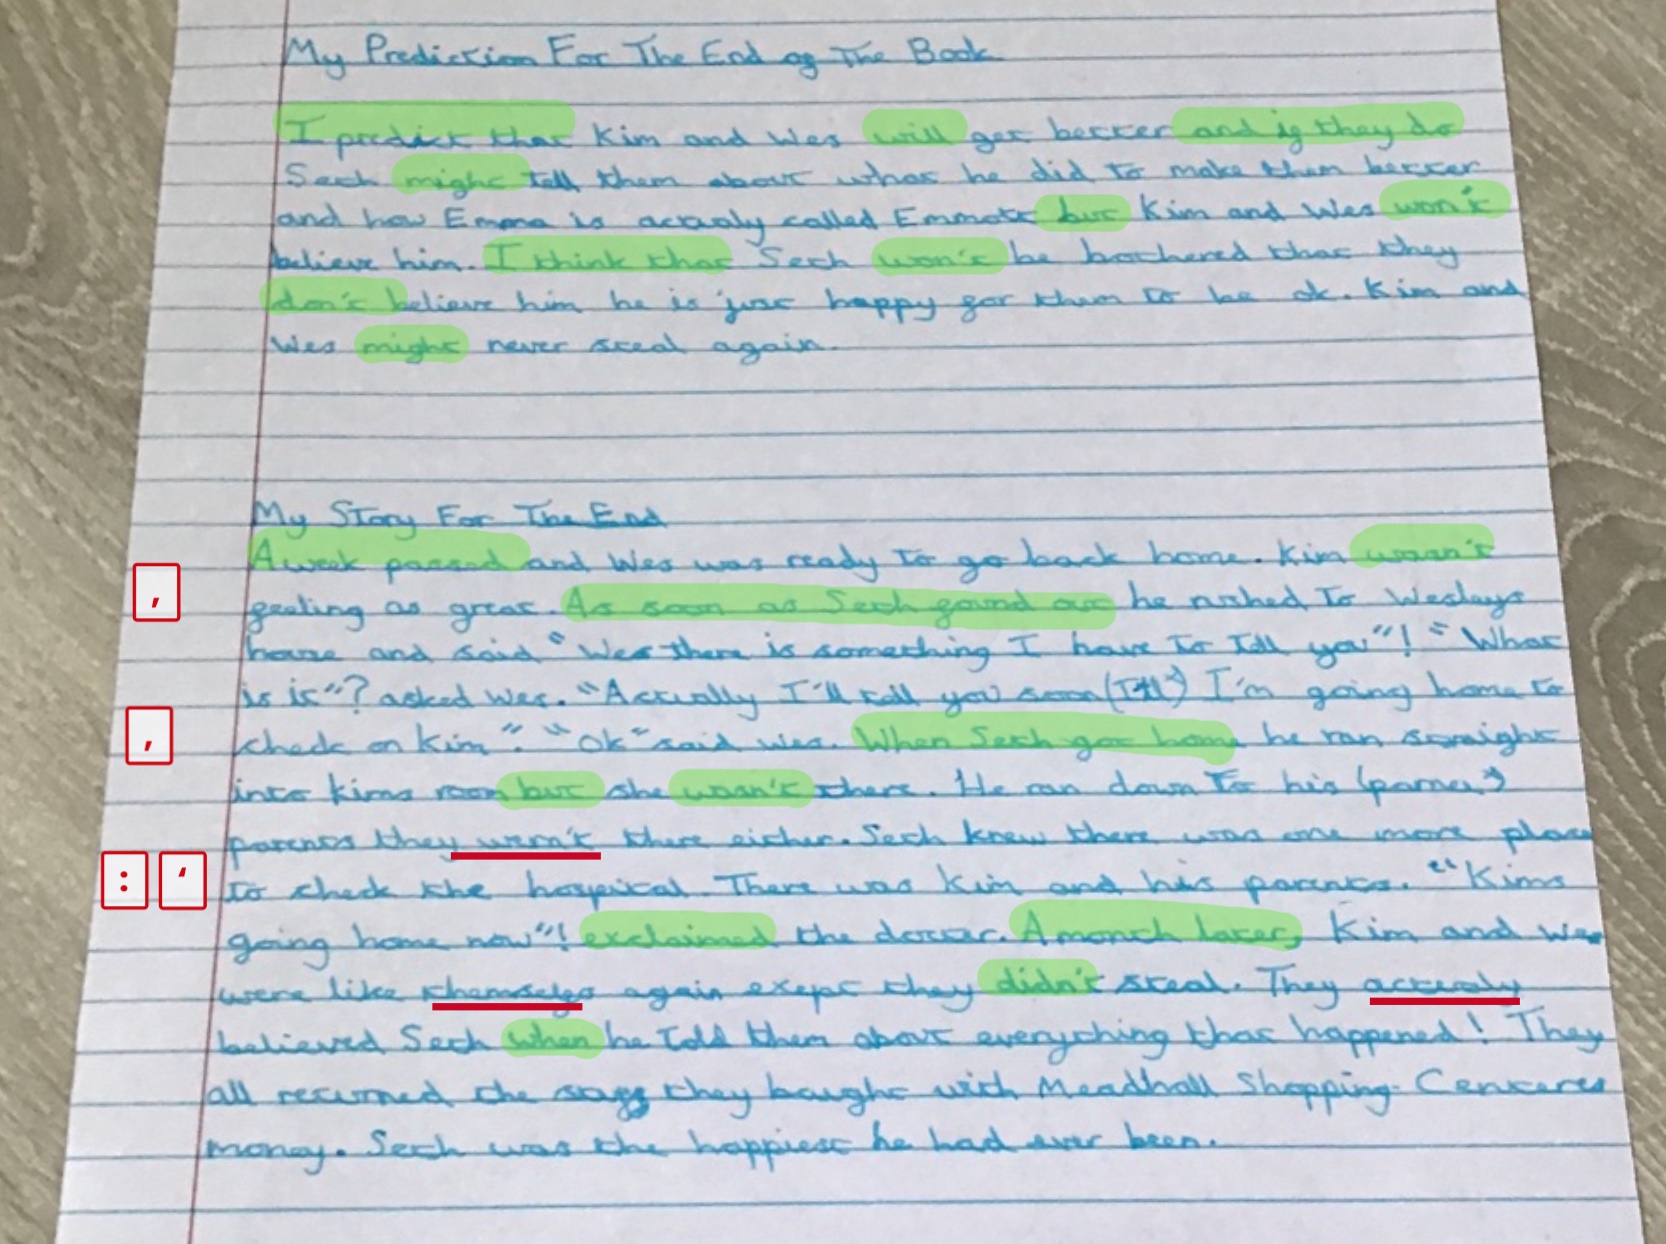 My Prediction For The End of The Book
I predict that Kim and Wes will get better and if they do
Seth might tell them about what he did to make them better
and how Emma is actualy called Emmote but Kim and Wes won't
believe him. I think that Seth won't be bothered that they
don't believe him he is just happy for them to be ok. Kim and
Wes might never steal again.
My Story For The End
A week passed and Wes was ready to go back home. Kim wasn't
, feeling as great. As soon as Seth found out he rushed to Wesleys
house and said "Wes there is something I have to tell you"! "What
is it"? asked Wes. "Actually I'll tell you soon (I'll) I'm going home to
, check on Kim". "Ok" said Wes. When Seth got home he ran straight
into Kims room but she wasn't there. He ran down to his
parents they wern't there either. Seth knew there was one more place
: ‘ to check the hospital. There was Kim and his parents. "Kims
going home now"! exclaimed the doctor. A month later, Kim and Wes
were like again exept they didn't steal. They actualy
believed Seth when he told them about everything that happened! They
all returned the they bought with Meadhall Shopping Centeres
money. Seth was the happiest he had ever been.